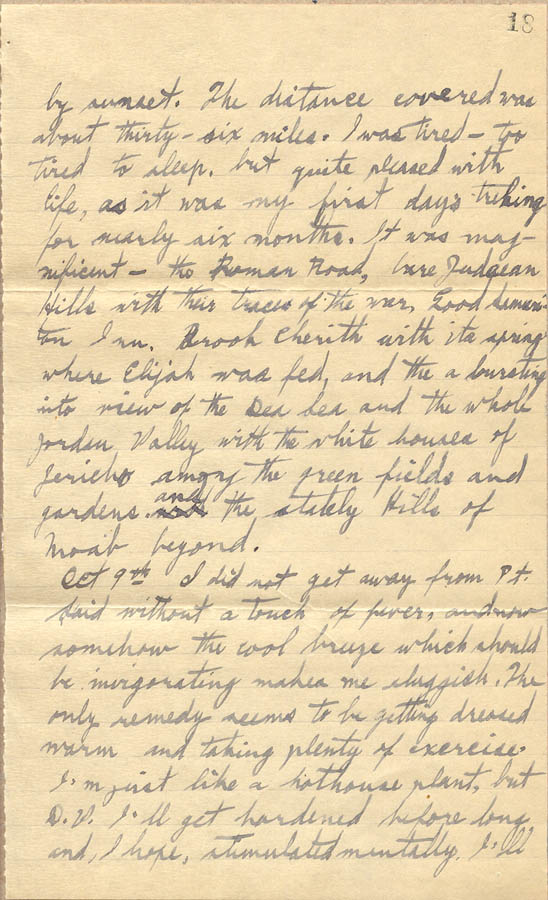 18
by sunset. The distance covered was
about thirty-six miles. I was tired - too
tired to sleep, but quite pleased with
life, as it was my first day's trekking
for nearly six months. It was mag-
nificent - the Roman Road, bare Judaean
Hills with their traces of the war, Good Samari-
tan Inn. Brook Cherith with its spring
where Elijah was fed, and the a bursting
into view of the Dea Sea and the whole
Jordan Valley with the white houses of
Jericho among the green fields and
gardens. and the stately Hills of
Moab beyond.
Oct 9th I did not get away from Pt.
Said without a touch of fever, and now
somehow the cool breeze which should
be invigorating makes me sluggish. The
only remedy seems to be getting dressed
warm and taking plenty of exercise.
I'm just like a hothouse plant, but
D.V. I'll get hardened before long
and, I hope, stimulated mentally. I'll